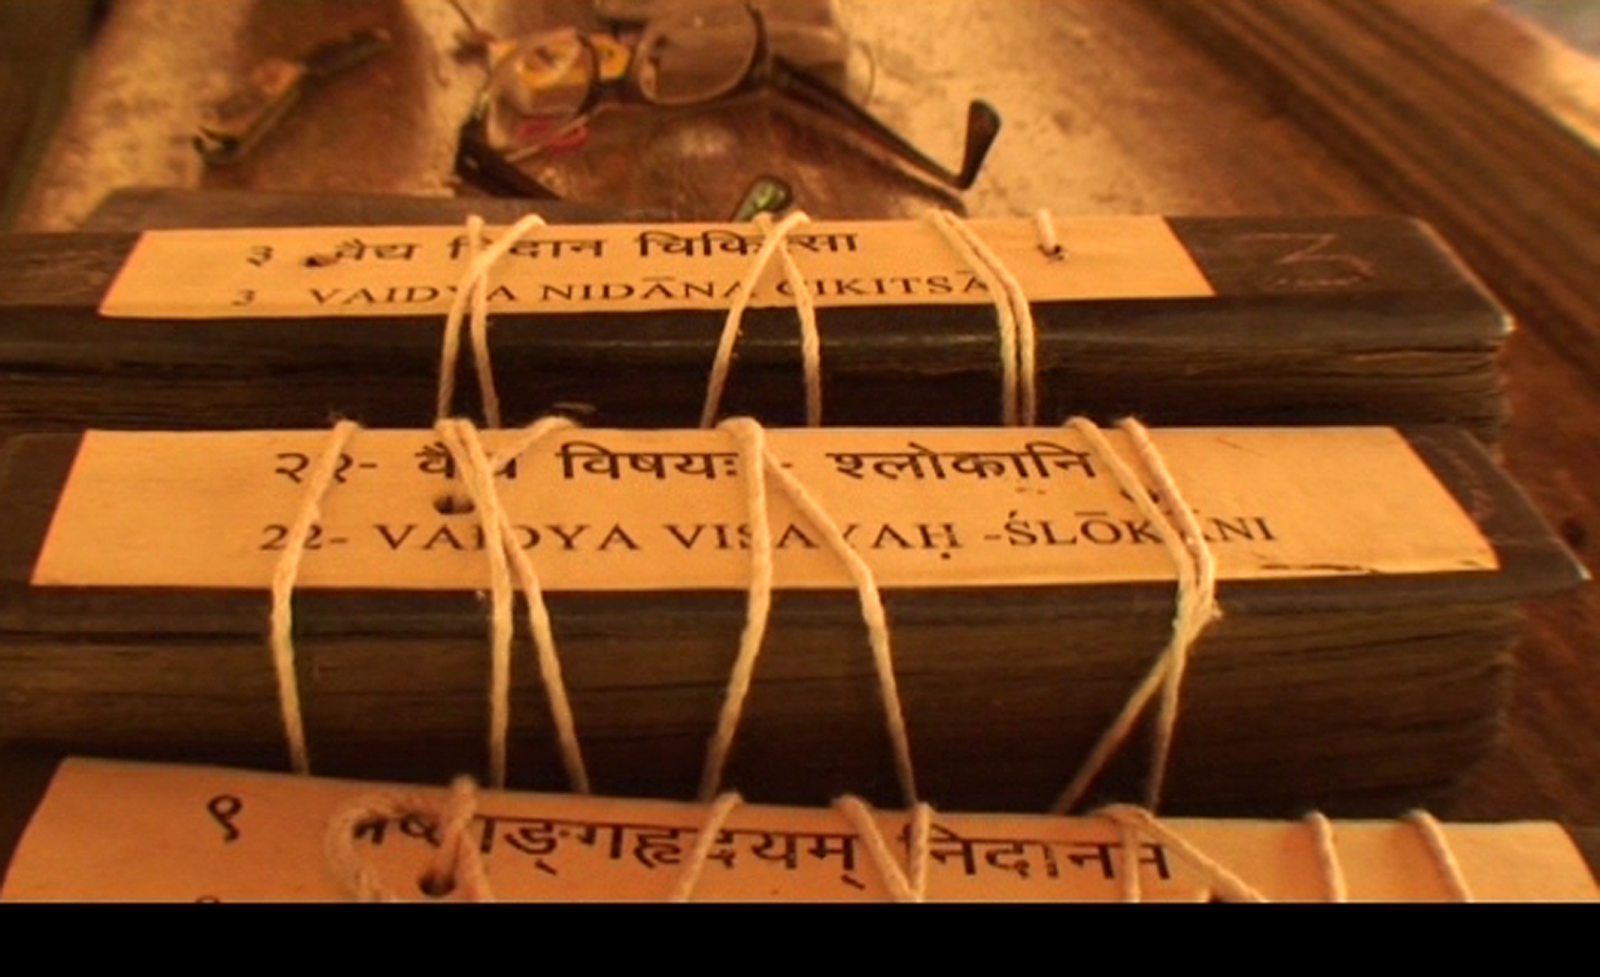 ३ वैद्य निदान चिकित्सा
3 VAIDYA NIDĀNA CIKITSĀ
3
२२- वैद्य विषयः - श्लोकानि
22- VAIDYA VISAYAḤ -ŚLŌKĀNI
९ अष्टाङ्गहृदयम् निदानम्